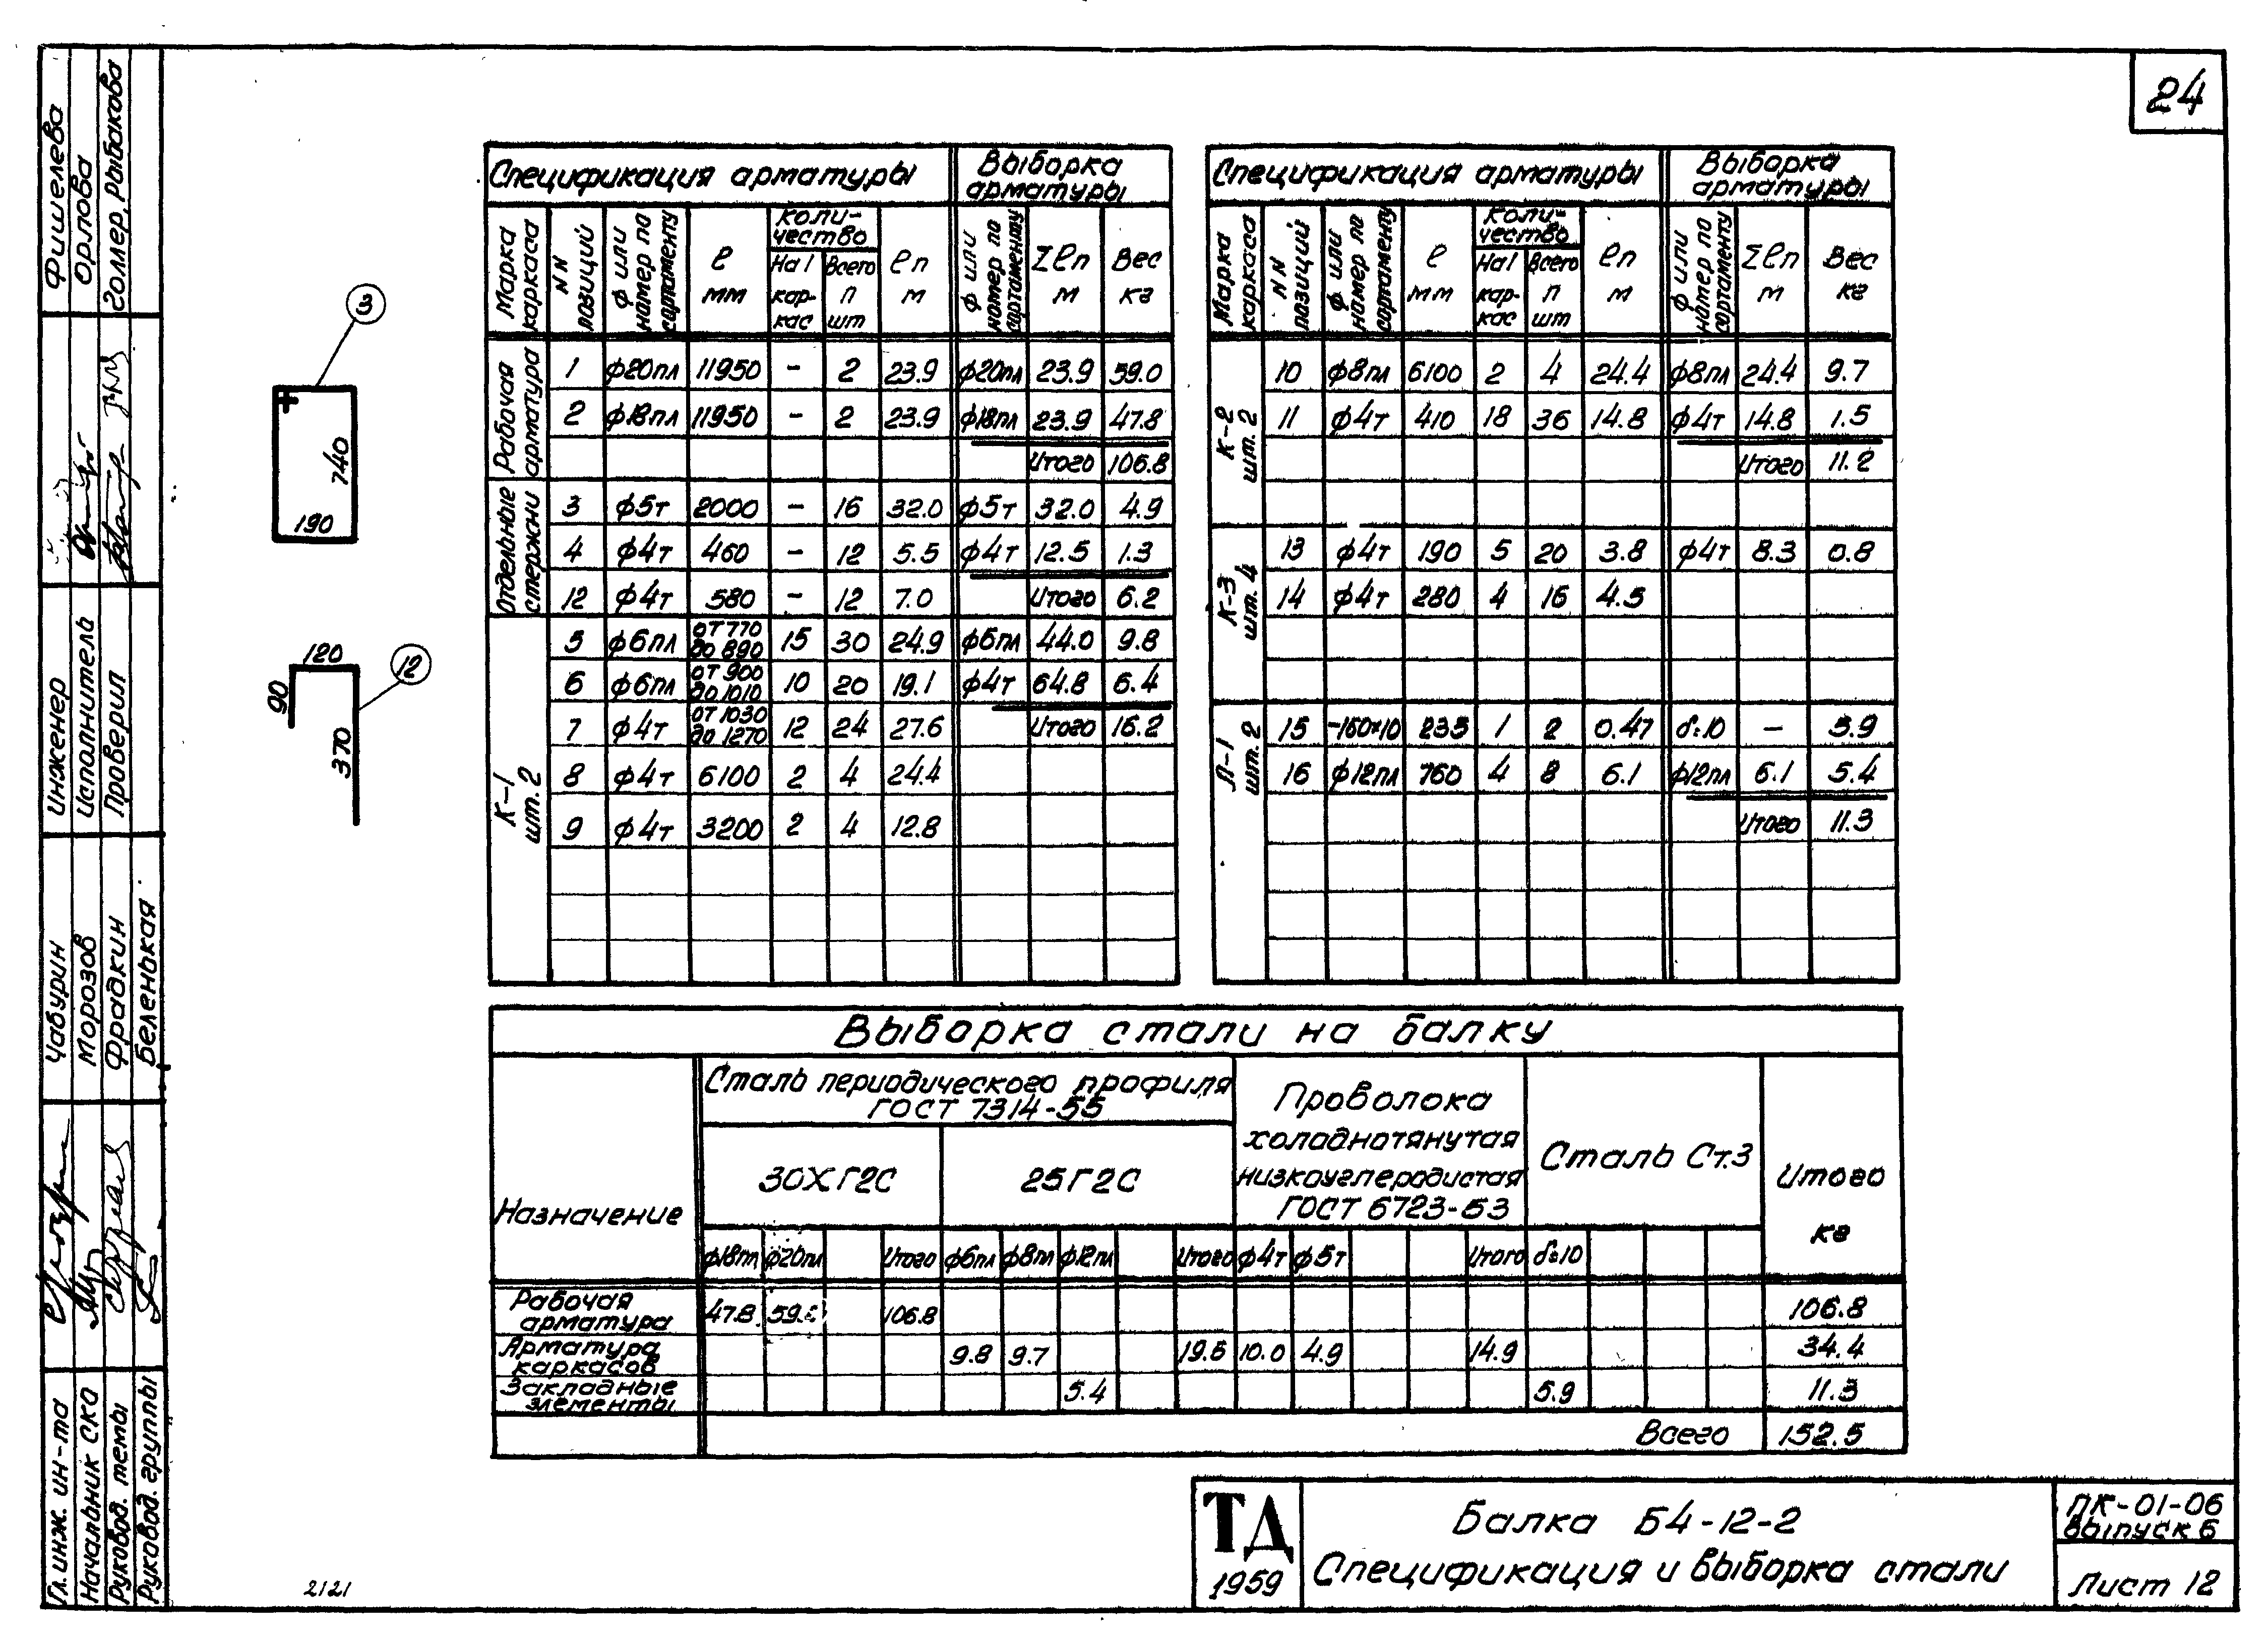 24
Фишелева
Орлова
Голлер, Рыбакова
Инженер
Исполнитель
Проверил
Чабурин
Морозов
Фрадкин
Беленькая
Гл. инж. ин-та
Начальник СКО
Руковод. темы
Руковод. группы
3
740
190
120
12
90
370
Спецификация арматуры Выборка арматуры
Марка каркаса N N позиций ф или номер по сортаменту ℓ мм Коли-чество На 1 кар-кас Всего п шт ℓп м ф или номер по сортаменту Σℓп м Вес кг
Рабочая арматура
1 ф20пл 11950 - 2 23.9 ф20пл 23.9 59.0
2 ф18пл 11950 - 2 23.9 ф18пл 23.9 47.8
Итого 106.8
Отдельные стержни
3 ф5т 2000 - 16 32.0 ф5т 32.0 4.9
4 ф4т 460 - 12 5.5 ф4т 12.5 1.3
12 ф4т 580 - 12 7.0 Итого 6.2
К-1 шт. 2
5 ф6пл от 770 до 890 15 30 24.9 ф6пл 44.0 9.8
6 ф6пл от 900 до 1010 10 20 19.1 ф4т 64.8 6.4
7 ф4т от 1030 до 1270 12 24 27.6 Итого 16.2
8 ф4т 6100 2 4 24.4
9 ф4т 3200 2 4 12.8
Спецификация арматуры Выборка арматуры
Марка каркаса N N позиций ф или номер по сортаменту ℓ мм Коли-чество На 1 кар-кас Всего п шт ℓп м ф или номер по сортаменту Σℓп м Вес кг
К-2 шт. 2
10 ф8пл 6100 2 4 24.4 ф8пл 24.4 9.7
11 ф4т 410 18 36 14.8 ф4т 14.8 1.5
Итого 11.2
К-3 шт. 4
13 ф4т 190 5 20 3.8 ф4т 8.3 0.8
14 ф4т 280 4 16 4.5
Л-1 шт. 2
15 -160×10 235 1 2 0.47 δ=10 - 5.9
16 ф12пл 760 4 8 6.1 ф12пл 6.1 5.4
Итого 11.3
Выборка стали на балку
Назначение
Сталь периодического профиля
ГОСТ 7314-55
30ХГ2С 25Г2С
Проволока
холоднотянутая
низкоуглеродистая
ГОСТ 6723-53
Сталь Ст.3
Итого
кг
ф18пл ф20пл Итого ф6пл ф8пл ф12пл Итого ф4т ф5т Итого δ=10
Рабочая арматура 47.8 59.0 106.8 106.8
Арматура каркасов 9.8 9.7 19.5 10.0 4.9 14.9 34.4
Закладные элементы 5.4 5.9 11.3
Всего 152.5
ТД
1959
Балка Б4-12-2
Спецификация и выборка стали
ПК-01-06
выпуск 6
Лист 12
2121